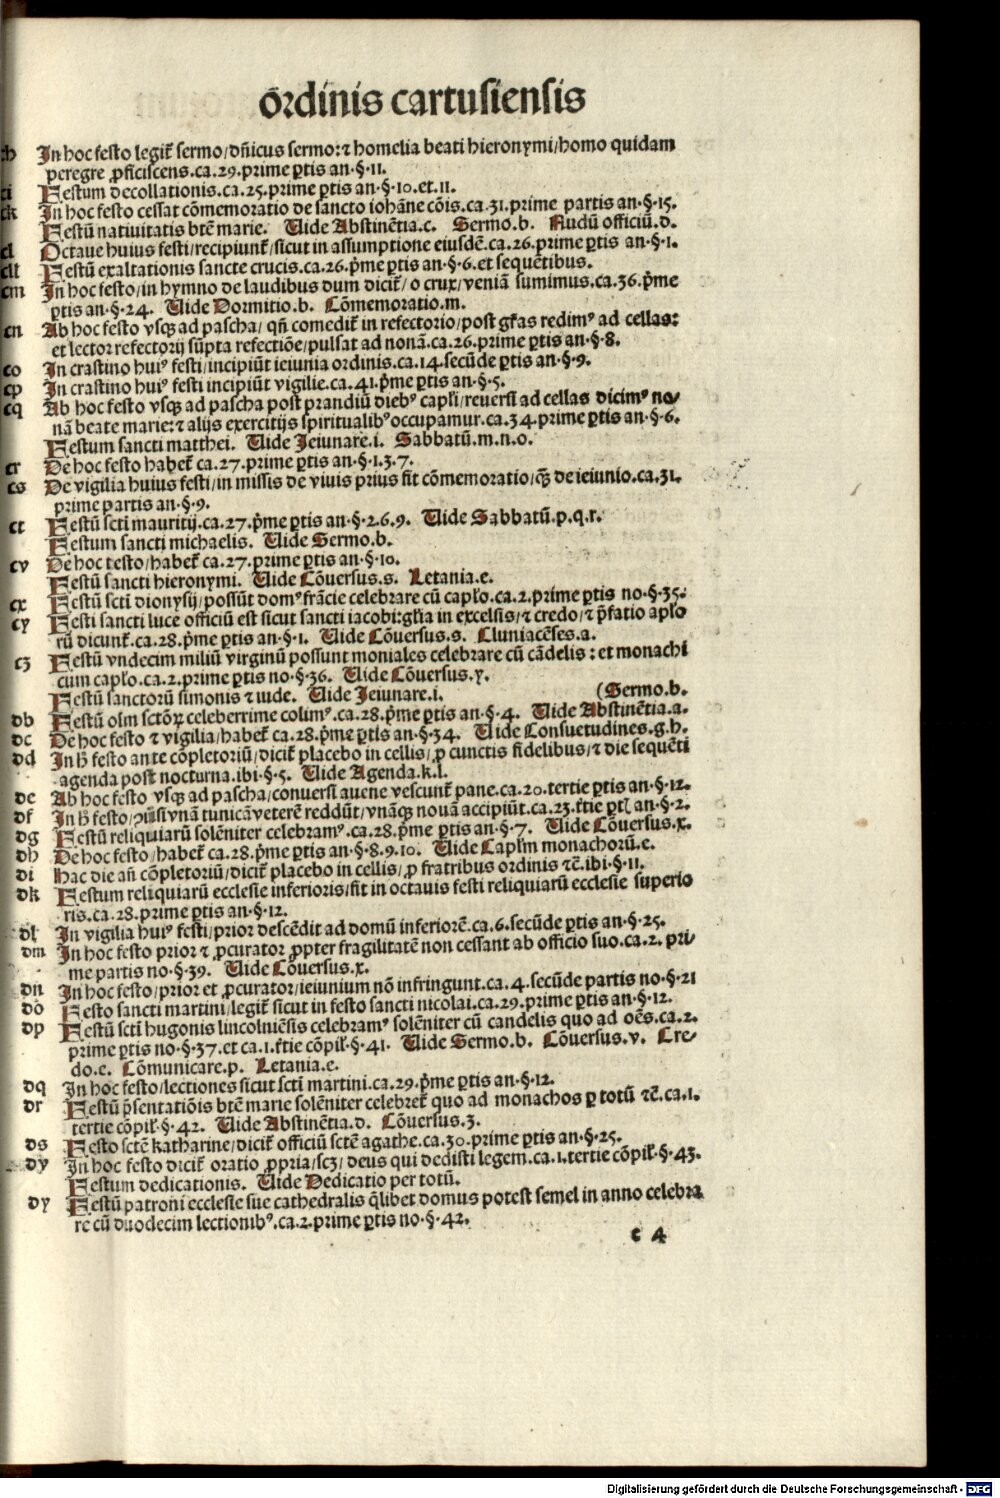 ōrdinis cartusiensis
ch In hoc festo legit᷑ sermo/dn̄icus sermo:⁊ homelia beati hieronymi/homo quidam
peregre ꝓficiscens.ca.29.prime ꝑtis an.§.11.
ci Festum decollationis.ca.25.prime ꝑtis an.§.10.et.11.
ck In hoc festo cessat cōmemoratio de sancto iohāne cōis.ca.31.prime partis an.§.15.
Festū natiuitatis btē marie. Uide Abstinētia.c. Sermo.b. Nudū officiū.d.
cl Octaue huius festi/recipiunt᷑/sicut in assumptione eiusdē.ca.26.prime ꝑtis an.§.1.
cll Festū exaltationis sancte crucis.ca.26.p̄me ꝑtis an.§.6.et sequētibus.
cm In hoc festo/in hymno de laudibus dum dicit᷑/o crux/veniā sumimus.ca.36.p̄me
ꝑtis an.§.24. Uide Dormitio.b. Cōmemoratio.m.
cn Ab hoc festo vsqꝫ ad pascha/qn̄ comedit᷑ in refectorio/post gr̄as redimꝰ ad cellas:
et lector refectorij sūpta refectiōe/pulsat ad nonā.ca.26.prime ꝑtis an.§.8.
co In crastino huiꝰ festi/incipiūt ieiunia ordinis.ca.14.secūde ꝑtis an.§.9.
cp In crastino huiꝰ festi incipiūt vigilie.ca.41.p̄me ꝑtis an.§.5.
cq Ab hoc festo vsqꝫ ad pascha post prandiū diebꝰ capl̄i/reuersi ad cellas dicimꝰ no/
nā beate marie:⁊ alijs exercitijs spiritualibꝰ occupamur.ca.34.prime ꝑtis an.§.6.
Festum sancti matthei. Uide Jeiunare.i. Sabbatū.m.n.o.
cr De hoc festo habet᷑ ca.27.prime ꝑtis an.§.1.3.7.
cs De vigilia huius festi/in missis de viuis prius fit cōmemoratio/qꝫ̄ de ieiunio.ca.31.
prime partis an.§.9.
ct Festū scti mauritij.ca.27.p̄me ꝑtis an.§.2.6.9. Uide Sabbatū.p.q.r.
Festum sancti michaelis. Uide Sermo.b.
cv De hoc festo/habet᷑ ca.27.prime ꝑtis an.§.10.
Festū sancti hieronymi. Uide Cōuersus.s. Letania.e.
cx Festū scti dionysij/possūt domꝰ frācie celebrare cū capl̄o.ca.2.prime ꝑtis no.§.35.
cy Festi sancti luce officiū est sicut sancti iacobi:gl̄ia in excelsis/⁊ credo/⁊ p̄fatio apl̄o
rū dicunt᷑.ca.28.p̄me ꝑtis an.§.1. Uide Cōuersus.s. Cluniacēses.a.
cz Festū vndecim miliū virginū possunt moniales celebrare cū cādelis:et monachi
cum capl̄o.ca.2.prime ꝑtis no.§.36. Uide Cōuersus.y.
Festū sanctorū simonis ⁊ iude. Uide Jeiunare.i. (Sermo.b.
db Festū oīm sctōꝝ celeberrime colimꝰ.ca.28.p̄me ꝑtis an.§.4. Uide Abstinētia.a.
dc De hoc festo ⁊ vigilia/habet᷑ ca.28.p̄me ꝑtis an.§.34. Uide Consuetudines.g.h.
dd In h̄ festo ante cōpletoriū/dicit᷑ placebo in cellis/ꝓ cunctis fidelibus/⁊ die sequēti
agenda post nocturna.ibi.§.5. Uide Agenda.k.l.
de Ab hoc festo vsqꝫ ad pascha/conuersi auene vescunt᷑ pane.ca.20.tertie ꝑtis an.§.12.
df In h̄ festo/ꝯuersi vnā tunicā veterē reddūt/vnāqꝫ nouā accipiūt.ca.23.t̄tie ꝑtꝭ an.§.2.
dg Festū reliquiarū solēniter celebramꝰ.ca.28.p̄me ꝑtis an.§.7. Uide Cōuersus.x.
dh De hoc festo/habet᷑ ca.28.p̄me ꝑtis an.§.8.9.10. Uide Capl̄m monachorū.e.
di Hac die an̄ cōpletoriū/dicit᷑ placebo in cellis/ꝓ fratribus ordinis ⁊c̄.ibi.§.11.
dk Festum reliquiarū ecclesie inferioris/fit in octauis festi reliquiarū ecclesie superio
ris.ca.28.prime ꝑtis an.§.12.
dl In vigilia huiꝰ festi/prior descēdit ad domū inferiorē.ca.6.secūde ꝑtis an.§.25.
dm In hoc festo prior ⁊ ꝓcurator ꝓpter fragilitatē non cessant ab officio suo.ca.2. pri/
me partis no.§.39. Uide Cōuersus.x.
dn In hoc festo/prior et ꝓcurator/ieiunium nō infringunt.ca.4.secūde partis no.§.21
do Festo sancti martini/legit᷑ sicut in festo sancti nicolai.ca.29.prime ꝑtis an.§.12.
dp Festū scti hugonis lincolniēsis celebramꝰ solēniter cū candelis quo ad oēs.ca.2.
prime ꝑtis no.§.37.et ca.1.t̄tie cōpil̄.§.41. Uide Sermo.b. Cōuersus.v. Cre/
do.e. Cōmunicare.p. Letania.e.
dq In hoc festo/lectiones sicut scti martini.ca.29.p̄me ꝑtis an.§.12.
dr Festū p̄sentatiōis btē marie solēniter celebret᷑ quo ad monachos ꝑ totū ⁊c̄.ca.1.
tertie cōpil̄.§.42. Uide Abstinētia.d. Cōuersus.3.
ds Festo sctē katharine/dicit᷑ officiū sctē agathe.ca.30.prime ꝑtis an.§.25.
dy In hoc festo dicit᷑ oratio ꝓpria/scꝫ/deus qui dedisti legem.ca.1.tertie cōpil̄.§.43.
Festum dedicationis. Uide Dedicatio per totū.
dy Festū patroni ecclesie siue cathedralis q̄libet domus potest semel in anno celebra
re cū duodecim lectionibꝰ.ca.2.prime ꝑtis no.§.42.
c 4
Digitalisierung gefördert durch die Deutsche Forschungsgemeinschaft - DFG